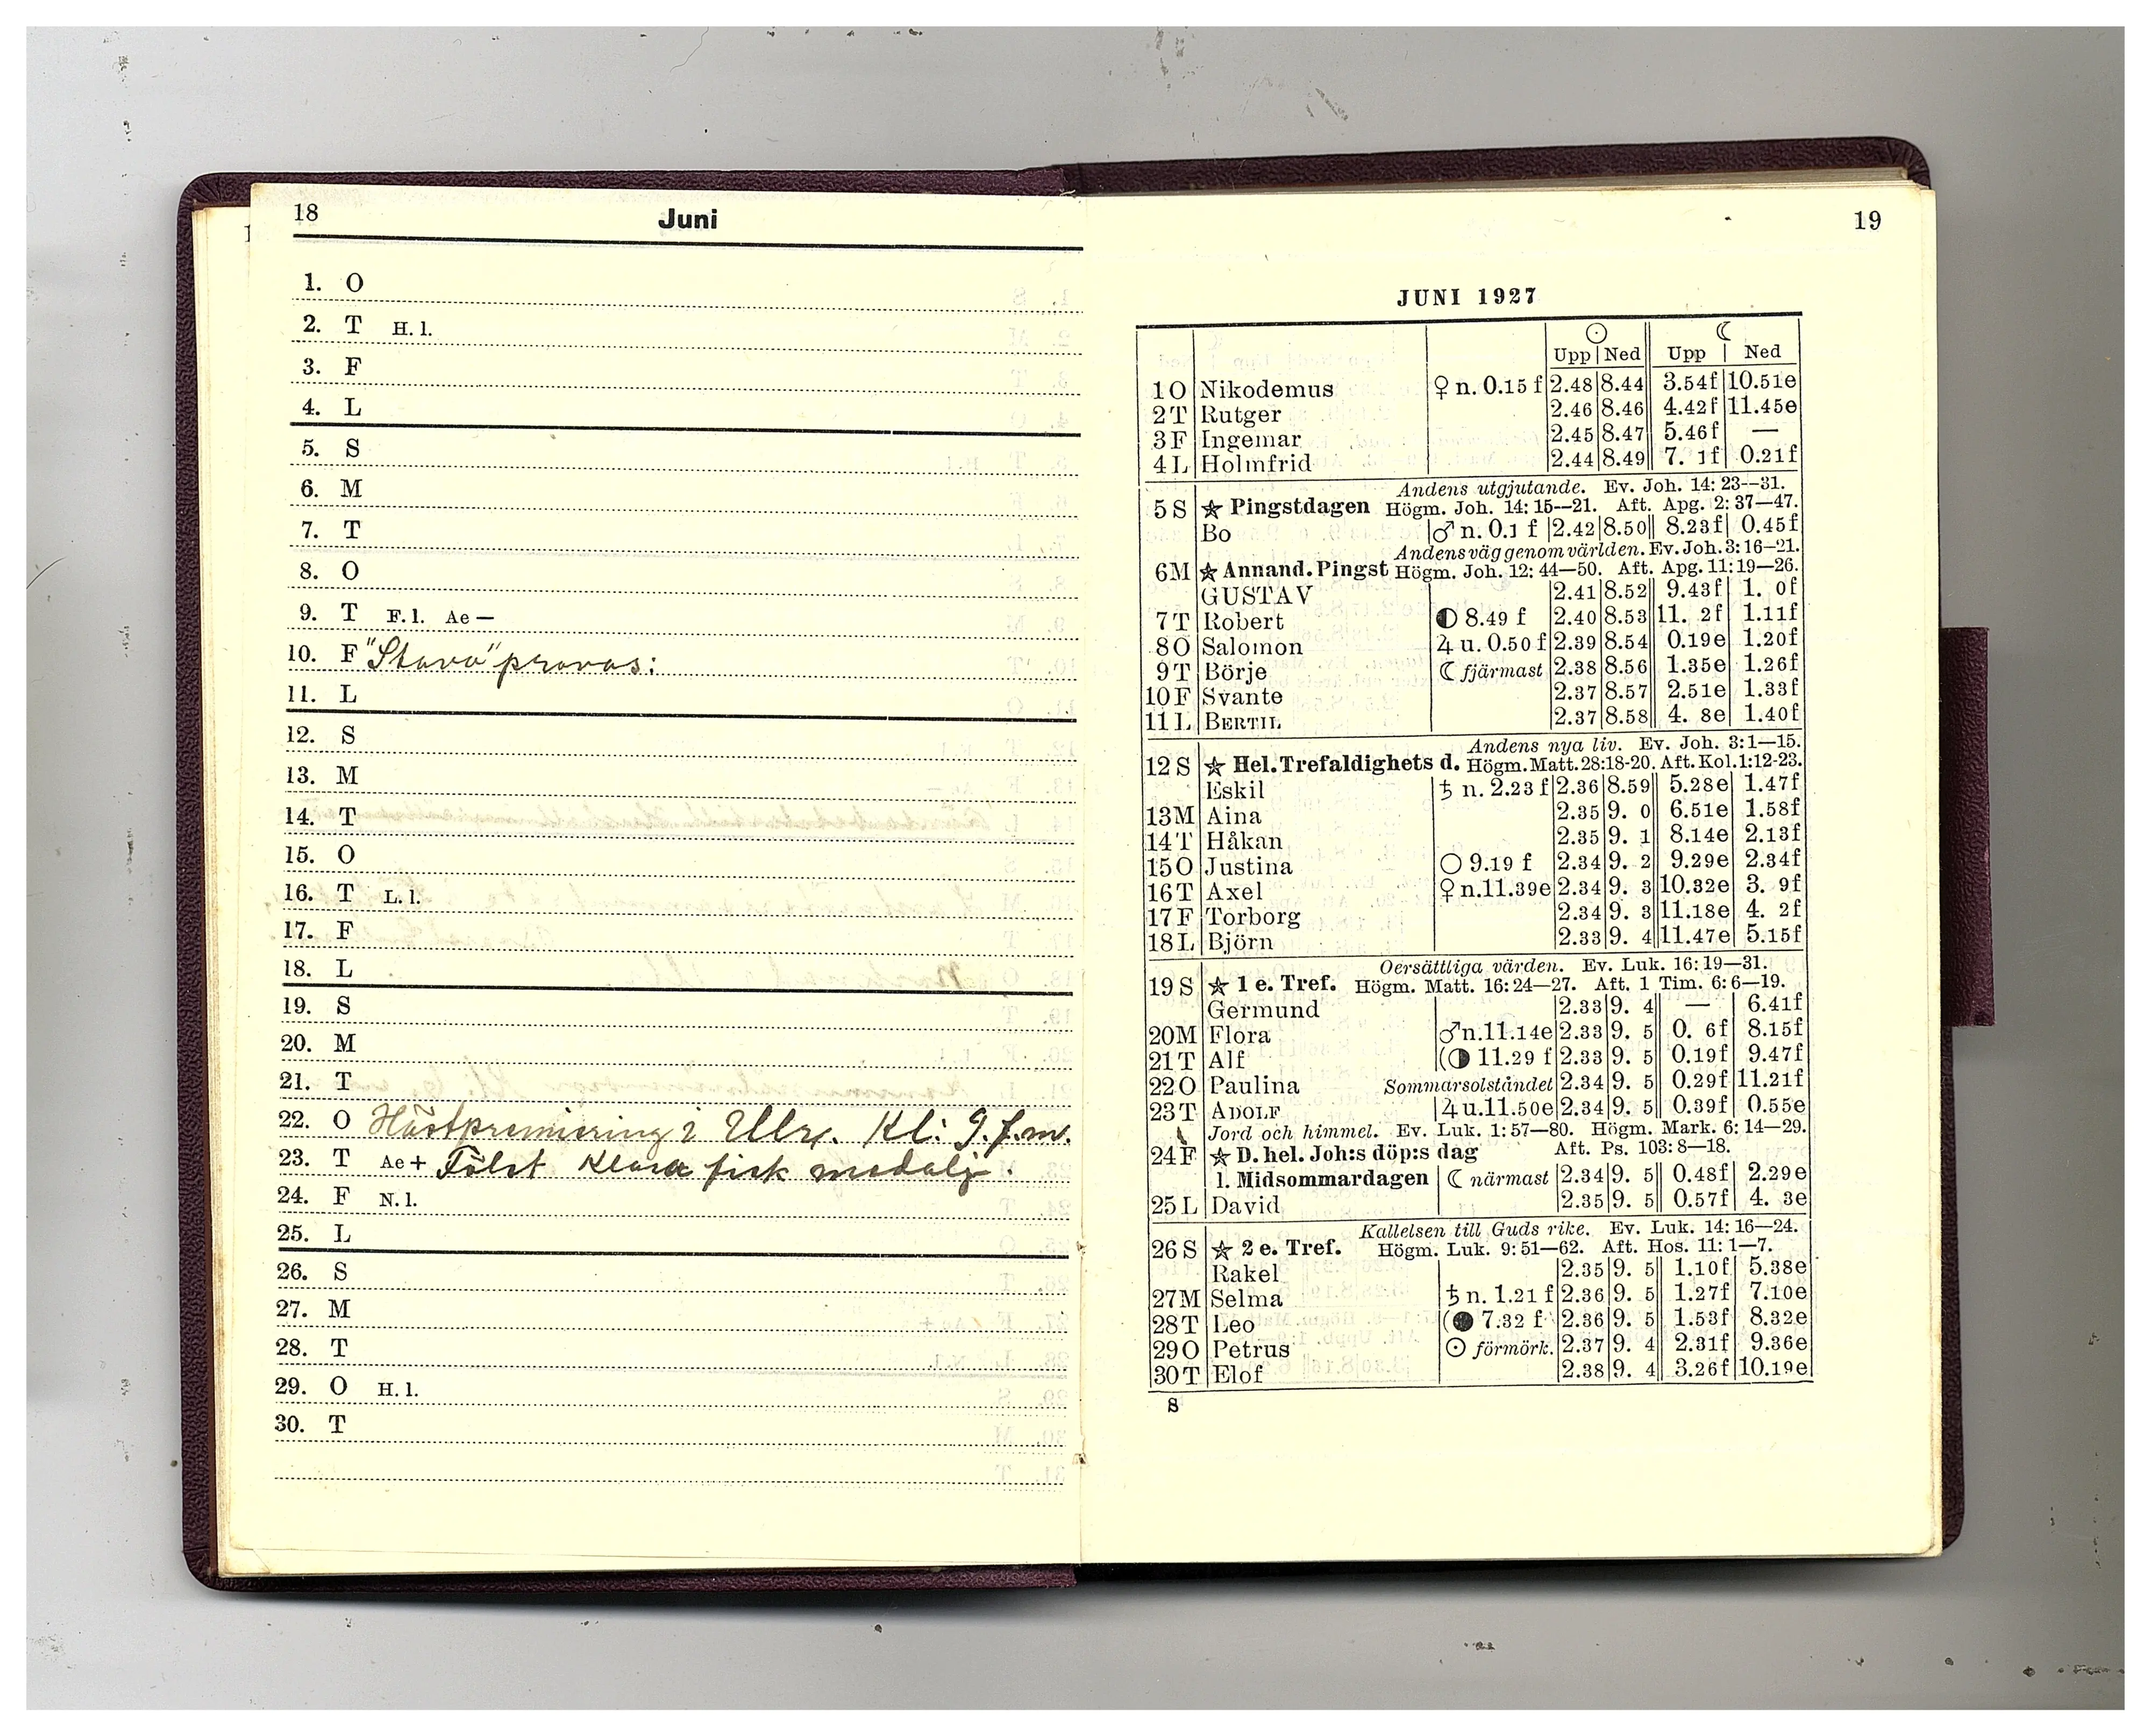 18
Juni
1. O
2. T H. l.
3. F
4. L
5. S
6. M
7. T
8. O
9. T F. l. Ae —
10. F "Stava" provas:
11. L
12. S
13. M
14. T
15. O
16. T L. l.
17. F
18. L
19. S
20. M
21. T
22. O Hästpremiering i Ulr. Kl: 9. f.m.
23. T Ae + Fölet Klara fick medalj.
24. F N. l.
25. L
26. S
27. M
28. T
29. O H. l.
30. T
19
JUNI 1927
☉ ☾
Upp | Ned Upp | Ned
1 O Nikodemus ♀ n. 0.15 f 2.48 8.44 3.54f 10.51e
2 T Rutger 2.46 8.46 4.42f 11.45e
3 F Ingemar 2.45 8.47 5.46f —
4 L Holmfrid 2.44 8.49 7. 1f 0.21f
Andens utgjutande. Ev. Joh. 14: 23—31.
5 S ★ Pingstdagen Högm. Joh. 14: 15—21. Aft. Apg. 2: 37—47.
Bo ♂ n. 0.1 f 2.42 8.50 8.23f 0.45f
Andens väg genom världen. Ev. Joh. 3: 16—21.
6 M ★ Annand. Pingst Högm. Joh. 12: 44—50. Aft. Apg. 11: 19—26.
GUSTAV 2.41 8.52 9.43f 1. 0f
7 T Robert ◐ 8.49 f 2.40 8.53 11. 2f 1.11f
8 O Salomon ♃ u. 0.50 f 2.39 8.54 0.19e 1.20f
9 T Börje ☾ fjärmast 2.38 8.56 1.35e 1.26f
10 F Svante 2.37 8.57 2.51e 1.33f
11 L BERTIL 2.37 8.58 4. 8e 1.40f
Andens nya liv. Ev. Joh. 3: 1—15.
12 S ★ Hel. Trefaldighets d. Högm. Matt. 28:18-20. Aft. Kol. 1:12-23.
Eskil ♄ n. 2.23 f 2.36 8.59 5.28e 1.47f
13 M Aina 2.35 9. 0 6.51e 1.58f
14 T Håkan 2.35 9. 1 8.14e 2.13f
15 O Justina ○ 9.19 f 2.34 9. 2 9.29e 2.34f
16 T Axel ♀ n. 11.39e 2.34 9. 3 10.32e 3. 9f
17 F Torborg 2.34 9. 3 11.18e 4. 2f
18 L Björn 2.33 9. 4 11.47e 5.15f
Oersättliga värden. Ev. Luk. 16: 19—31.
19 S ★ 1 e. Tref. Högm. Matt. 16: 24—27. Aft. 1 Tim. 6: 6—19.
Germund 2.33 9. 4 — 6.41f
20 M Flora ♂ n. 11.14e 2.33 9. 5 0. 6f 8.15f
21 T Alf (◑ 11.29 f 2.33 9. 5 0.19f 9.47f
22 O Paulina Sommarsolståndet 2.34 9. 5 0.29f 11.21f
23 T ADOLF ♃ u. 11.50e 2.34 9. 5 0.39f 0.55e
Jord och himmel. Ev. Luk. 1: 57—80. Högm. Mark. 6: 14—29.
24 F ★ D. hel. Joh:s döp:s dag Aft. Ps. 103: 8—18.
l. Midsommardagen ☾ närmast 2.34 9. 5 0.48f 2.29e
25 L David 2.35 9. 5 0.57f 4. 3e
Kallelsen till Guds rike. Ev. Luk. 14: 16—24.
26 S ★ 2 e. Tref. Högm. Luk. 9: 51—62. Aft. Hos. 11: 1—7.
Rakel 2.35 9. 5 1.10f 5.38e
27 M Selma ♄ n. 1.21 f 2.36 9. 5 1.27f 7.10e
28 T Leo (● 7.32 f 2.36 9. 5 1.53f 8.32e
29 O Petrus ☉ förmörk. 2.37 9. 4 2.31f 9.36e
30 T Elof 2.38 9. 4 3.26f 10.19e
8